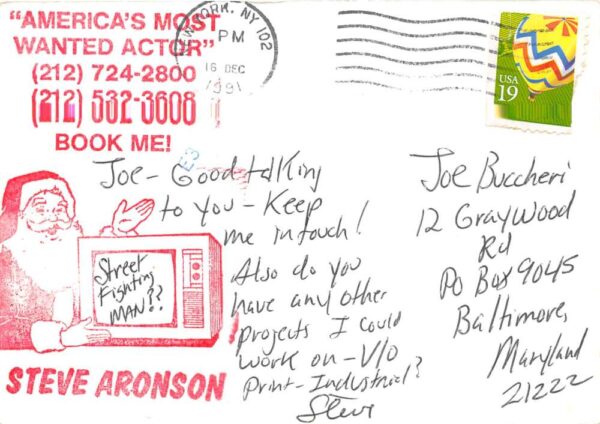 "AMERICA'S MOST
WANTED ACTOR"
(212) 724-2800
(212) 532-3608
BOOK ME!
NEW YORK, NY 102
PM
16 DEC
1991
USA
19
Joe - Good talking
to you - Keep
me in touch!
Also do you
have any other
projects I could
work on - V/O
Print - Industrial?
Steve
Street
Fighting
MAN??
STEVE ARONSON
Joe Buccheri
12 Graywood
Rd
PO Box 9045
Baltimore,
Maryland
21222